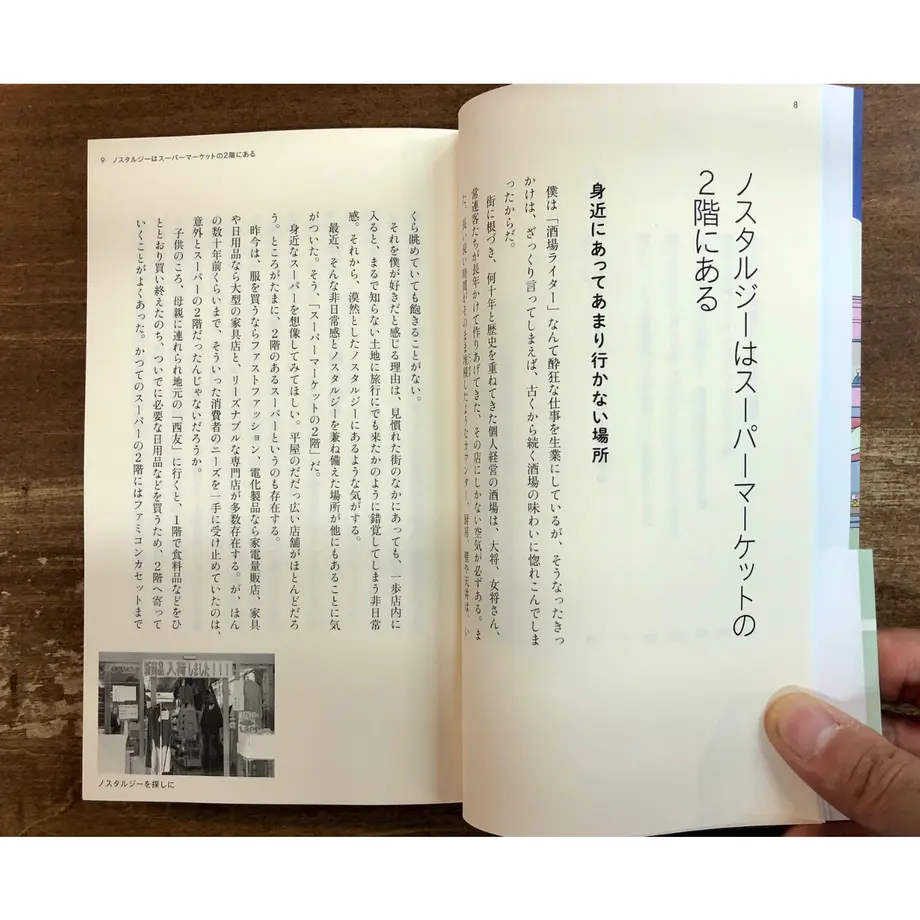 8
ノスタルジーはスーパーマーケットの
2階にある
身近にあってあまり行かない場所
僕は「酒場ライター」なんて酔狂な仕事を生業にしているが、そうなったきっ
かけは、ざっくり言ってしまえば、古くから続く酒場の味わいに惚れこんでしま
ったからだ。
街に根づき、何十年と歴史を重ねてきた個人経営の酒場は、大将、女将さん、
常連客たちが長年かけて作りあげてきた、その店にしかない空気が必ずある。ま
た、長い長い時間がそのまま堆積したようなカウンター、厨房、壁や天井は、い
9 ノスタルジーはスーパーマーケットの2階にある
くら眺めていても飽きることがない。
それを僕が好きだと感じる理由は、見慣れた街のなかにあっても、一歩店内に
入ると、まるで知らない土地に旅行にでも来たかのように錯覚してしまう非日常
感。それから、漠然としたノスタルジーにあるような気がする。
最近、そんな非日常感とノスタルジーを兼ね備えた場所が他にもあることに気
がついた。そう、「スーパーマーケットの2階」だ。
身近なスーパーを想像してみてほしい。平屋のだだっ広い店舗がほとんどだろ
う。ところがたまに、2階のあるスーパーというのも存在する。
昨今は、服を買うならファストファッション、電化製品なら家電量販店、家具
や日用品なら大型の家具店と、リーズナブルな専門店が多数存在する。が、ほん
の数十年前くらいまで、そういった消費者のニーズを一手に受け止めていたのは、
意外とスーパーの2階だったんじゃないだろうか。
子供のころ、母親に連れられ地元の「西友」に行くと、1階で食料品などをひ
ととおり買い終えたのち、ついでに必要な日用品などを買うため、2階へ寄って
いくことがよくあった。かつてのスーパーの2階にはファミコンカセットまで
新商品入荷しました!!!
ノスタルジーを探しに